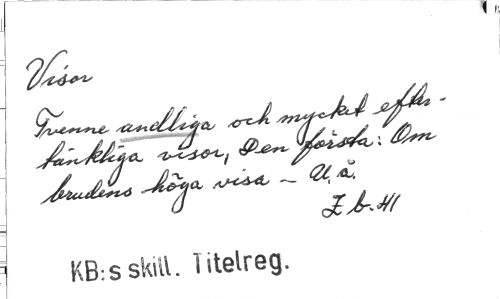 Visor
Tvenne andliga och mycket efter-
tänkliga visor, Den första: Om
brudens höga visa - U.å.
Z b. 41
KB:s skill. Titelreg.